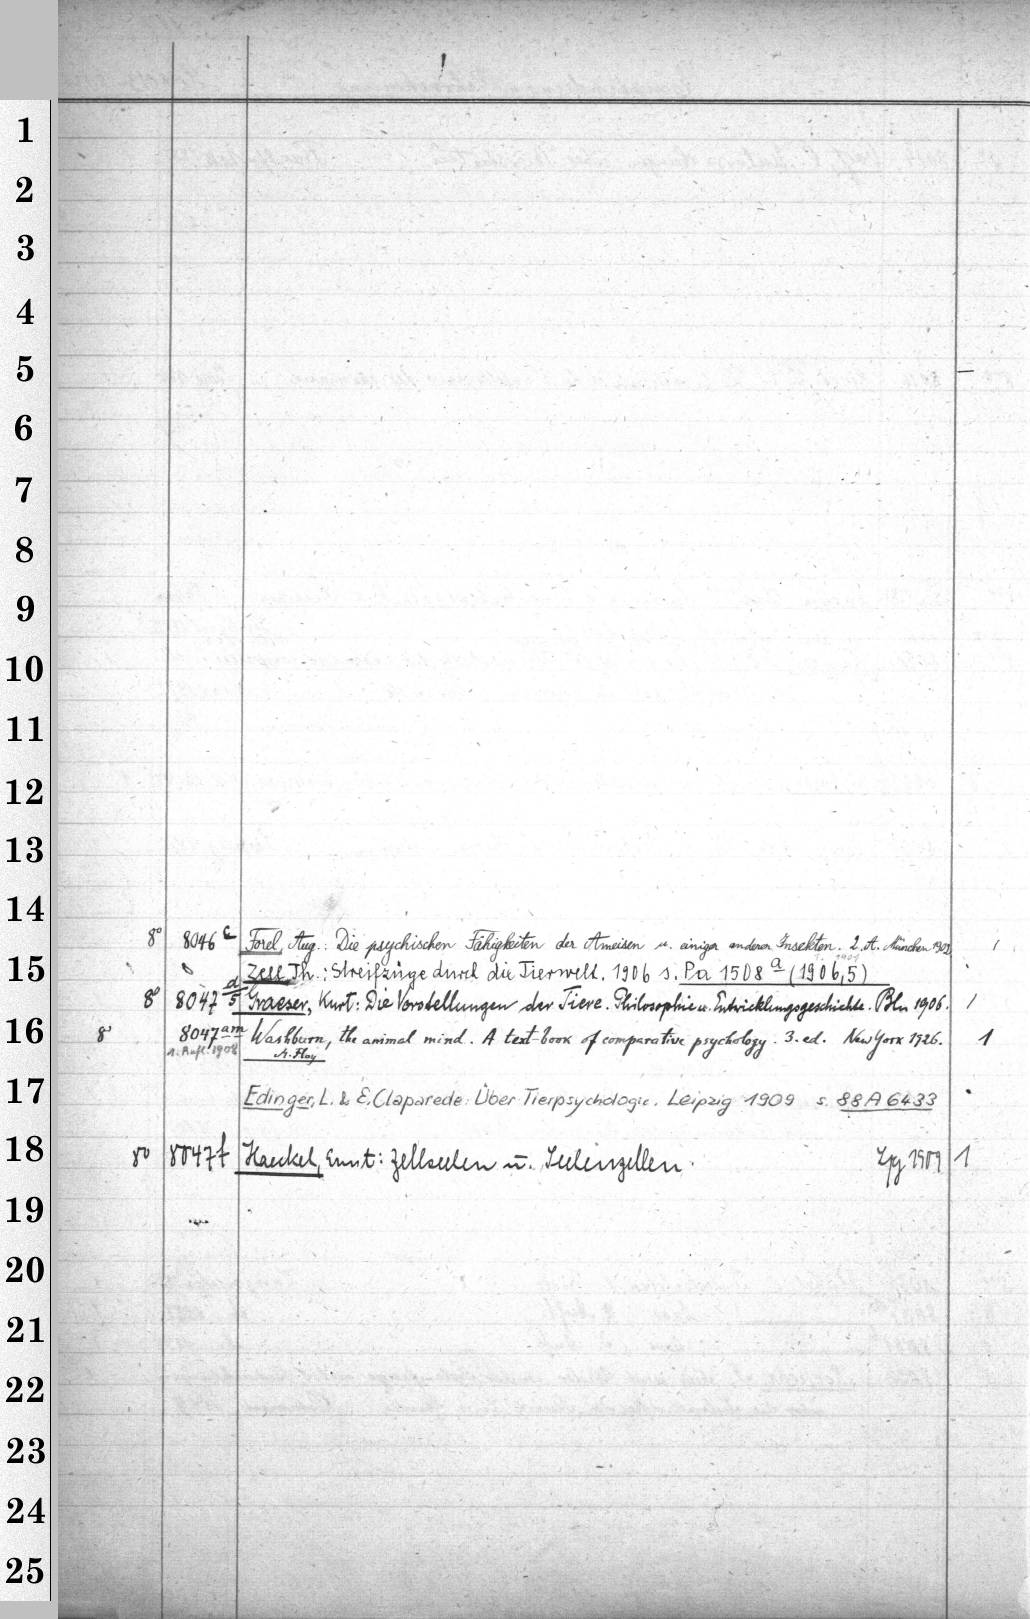 1
2
3
4
5
6
7
8
9
10
11
12
13
14
8° 8046 c Forel, Aug.: Die psychischen Fähigkeiten der Ameisen u. einiger anderer Insekten. 2. A. München 1902 1
15 Zell Th.: Streifzüge durch die Tierwelt. 1906 s. Pa 1508 a (1906,5)
8° 8047 d/5 Graeser, Kurt: Die Vorstellungen der Tiere. Philosophie u. Entwicklungsgeschichte. Bln 1906. 1
16 8° 8047 am Washburn, the animal mind. A text-book of comparative psychology. 3. ed. New York 1926. 1
1. Aufl. 1908
17 Edinger, L. & E. Claparede: Über Tierpsychologie. Leipzig 1909 s. 88 A 6433
18 8° 8047 f Haeckel, Ernst: Zellseelen u. Seelenzellen. Lpg 1909 1
19
20
21
22
23
24
25